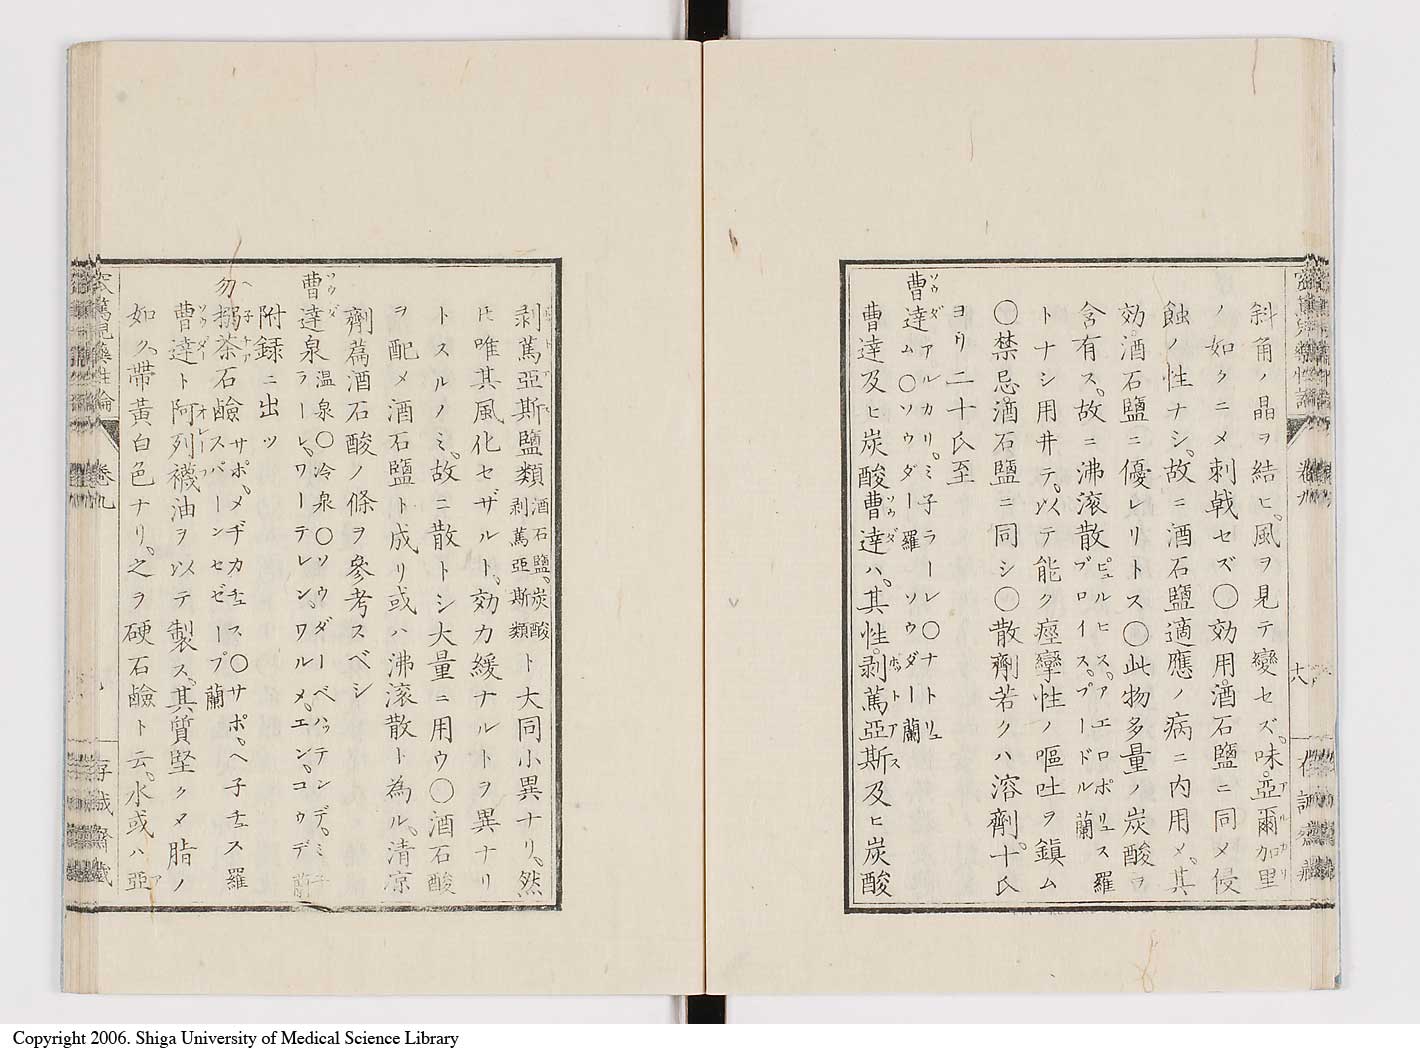 斜角ノ晶ヲ結ヒ。風ヲ見テ變セズ。味。亞爾加里アルカリ
ノ如クニ〆刺戟セズ〇効用。酒石鹽ニ同〆侵
蝕ノ性ナシ。故ニ酒石鹽適應ノ病ニ内用〆。其
効酒石鹽ニ優レリトス〇此物多量ノ炭酸ヲ
含有ス。故ニ沸滾散ピュルヒス。アエロポリュス羅ブロイス。プードル蘭
トナシ用井テ。以テ能ク痙攣性ノ嘔吐ヲ鎮ム
〇禁忌酒石鹽ニ同シ〇散劑若クハ溶劑。十氏
ヨリ二十氏至
曹達ソウダアルカリ。ミ子ラーレ〇ナトリュム〇ソウダー羅ソウダー蘭
曹達及ヒ炭酸曹達ソウダハ。其性。剥篤亞斯ポットアス及ヒ炭酸
剥篤亞斯鹽類酒石鹽。炭酸剥篤亞斯類ト大同小異ナリ。然
㪽唯其風化セザルト。効力緩ナルトヲ異ナリ
トスルノミ。故ニ散トシ大量ニ用ウ〇酒石酸
ヲ配〆酒石鹽ト成リ或ハ沸滾散ト為ル。清凉
劑篇酒石酸ノ條ヲ參考スベシ
曹達ソウダ泉温泉〇冷泉〇ソウダーベハッテンデ。ミ子ラーレ。ワーテレン。ワルメ。エン。コウデ蘭
附録ニ出ツ
勿搦茶ヘ子チア石鹼サポ。メヂカチュス〇サポ。ヘ子チュス羅スパーンセゼープ蘭
曹達ソウダート阿列襪オレーフ油ヲ以テ製ス。其質堅ク〆脂ノ
如ク。帶黃白色ナリ。之ヲ硬石鹼ト云。水或ハ亞ア
卷九
十八
卷九
存誠齋藏
Copyright 2006. Shiga University of Medical Science Library